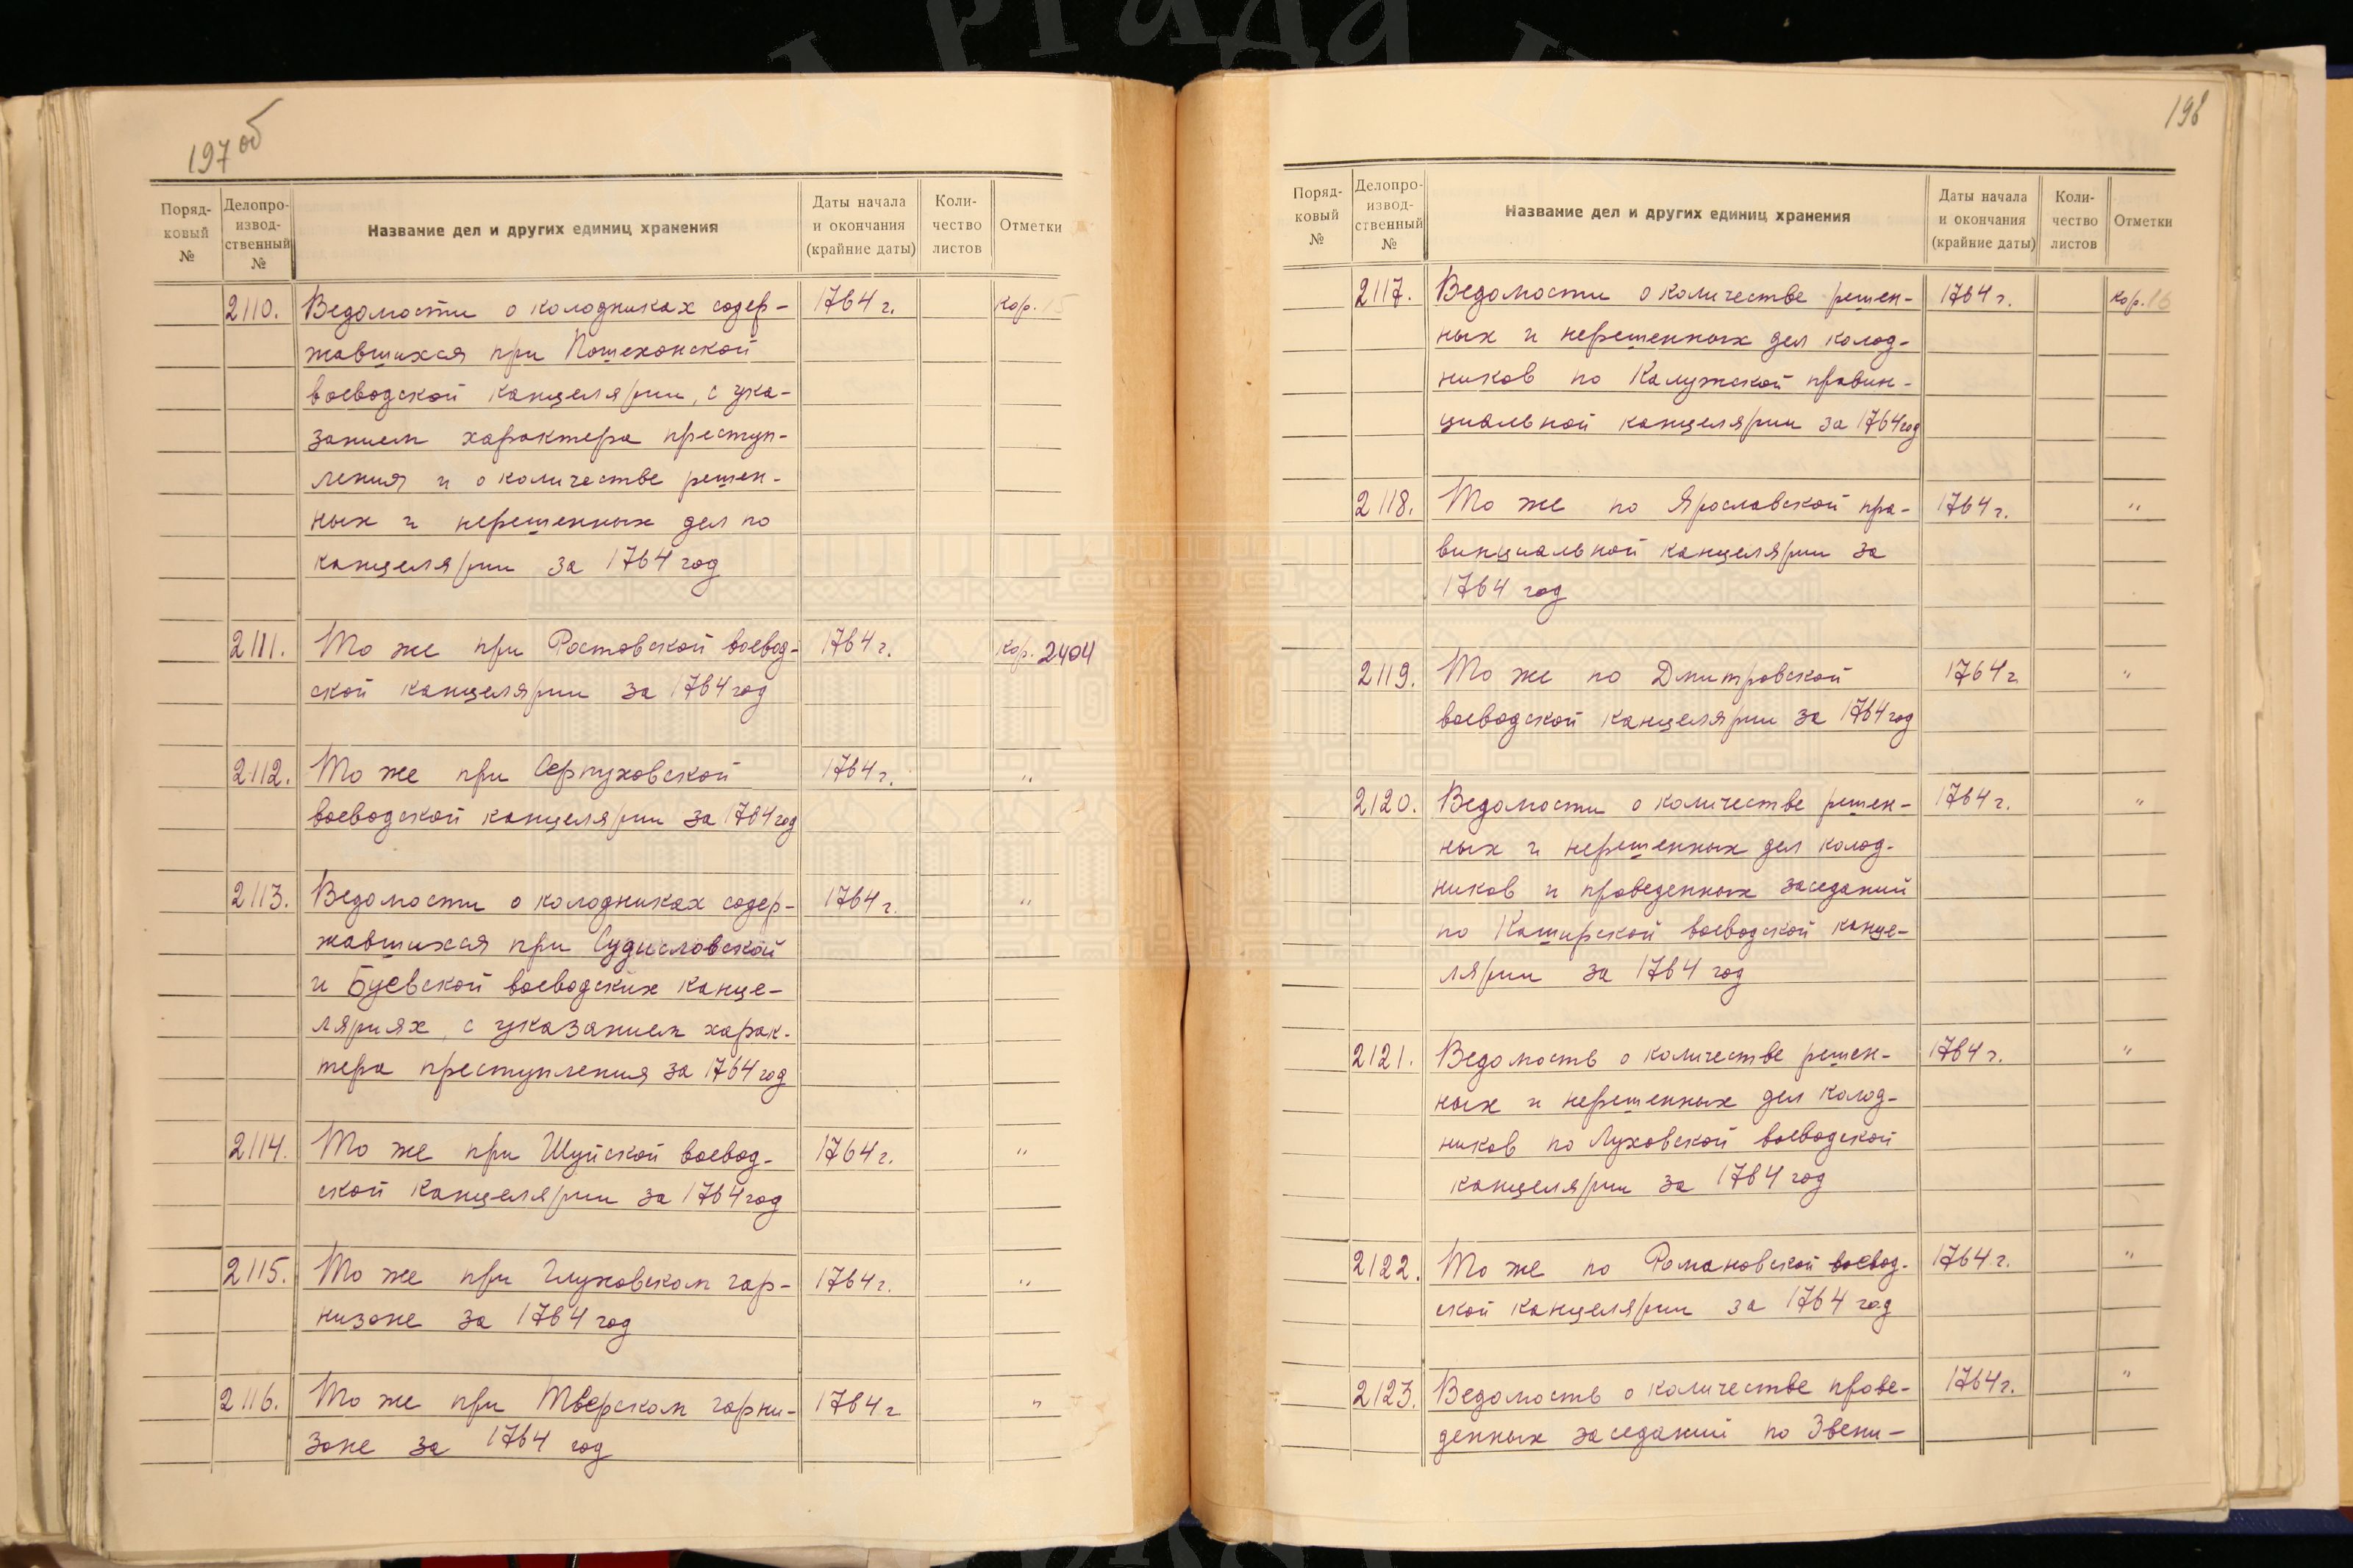 197 об
Поряд-
ковый
№
Делопро-
извод-
ственный
№
Название дел и других единиц хранения
Даты начала
и окончания
(крайние даты)
Коли-
чество
листов
Отметки
2110. Ведомости о колодниках содер- 1764 г. кор. 15
жавшихся при Пошехонской
воеводской канцелярии, с ука-
занием характера преступ-
ления и о количестве решен-
ных и нерешенных дел по
канцелярии за 1764 год
2111. То же при Ростовской воевод- 1764 г. кор. 2404
ской канцелярии за 1764 год
2112. То же при Серпуховской 1764 г. "
воеводской канцелярии за 1764 год
2113. Ведомости о колодниках содер- 1764 г. "
жавшихся при Судисловской
и Буевской воеводских канце-
ляриях, с указанием харак-
тера преступления за 1764 год
2114. То же при Шуйской воевод- 1764 г. "
ской канцелярии за 1764 год
2115. То же при Глуховском гар- 1764 г. "
низоне за 1764 год
2116. То же при Тверском гарни- 1764 г "
зоне за 1764 год
198
Поряд-
ковый
№
Делопро-
извод-
ственный
№
Название дел и других единиц хранения
Даты начала
и окончания
(крайние даты)
Коли-
чество
листов
Отметки
2117. Ведомости о количестве решен- 1764 г. кор. 16
ных и нерешенных дел колод-
ников по Калужской провин-
циальной канцелярии за 1764 год
2118. То же по Ярославской про- 1764 г. "
винциальной канцелярии за
1764 год
2119. То же по Дмитровской 1764 г "
воеводской канцелярии за 1764 год
2120. Ведомости о количестве решен- 1764 г. "
ных и нерешенных дел колод-
ников и проведенных заседаний
по Каширской воеводской канце-
лярии за 1764 год
2121. Ведомость о количестве решен- 1764 г. "
ных и нерешенных дел колод-
ников по Луховской воеводской
канцелярии за 1764 год
2122. То же по Романовской воевод- 1764 г. "
ской канцелярии за 1764 год
2123. Ведомость о количестве прове- 1764 г. "
денных заседаний по Звени-